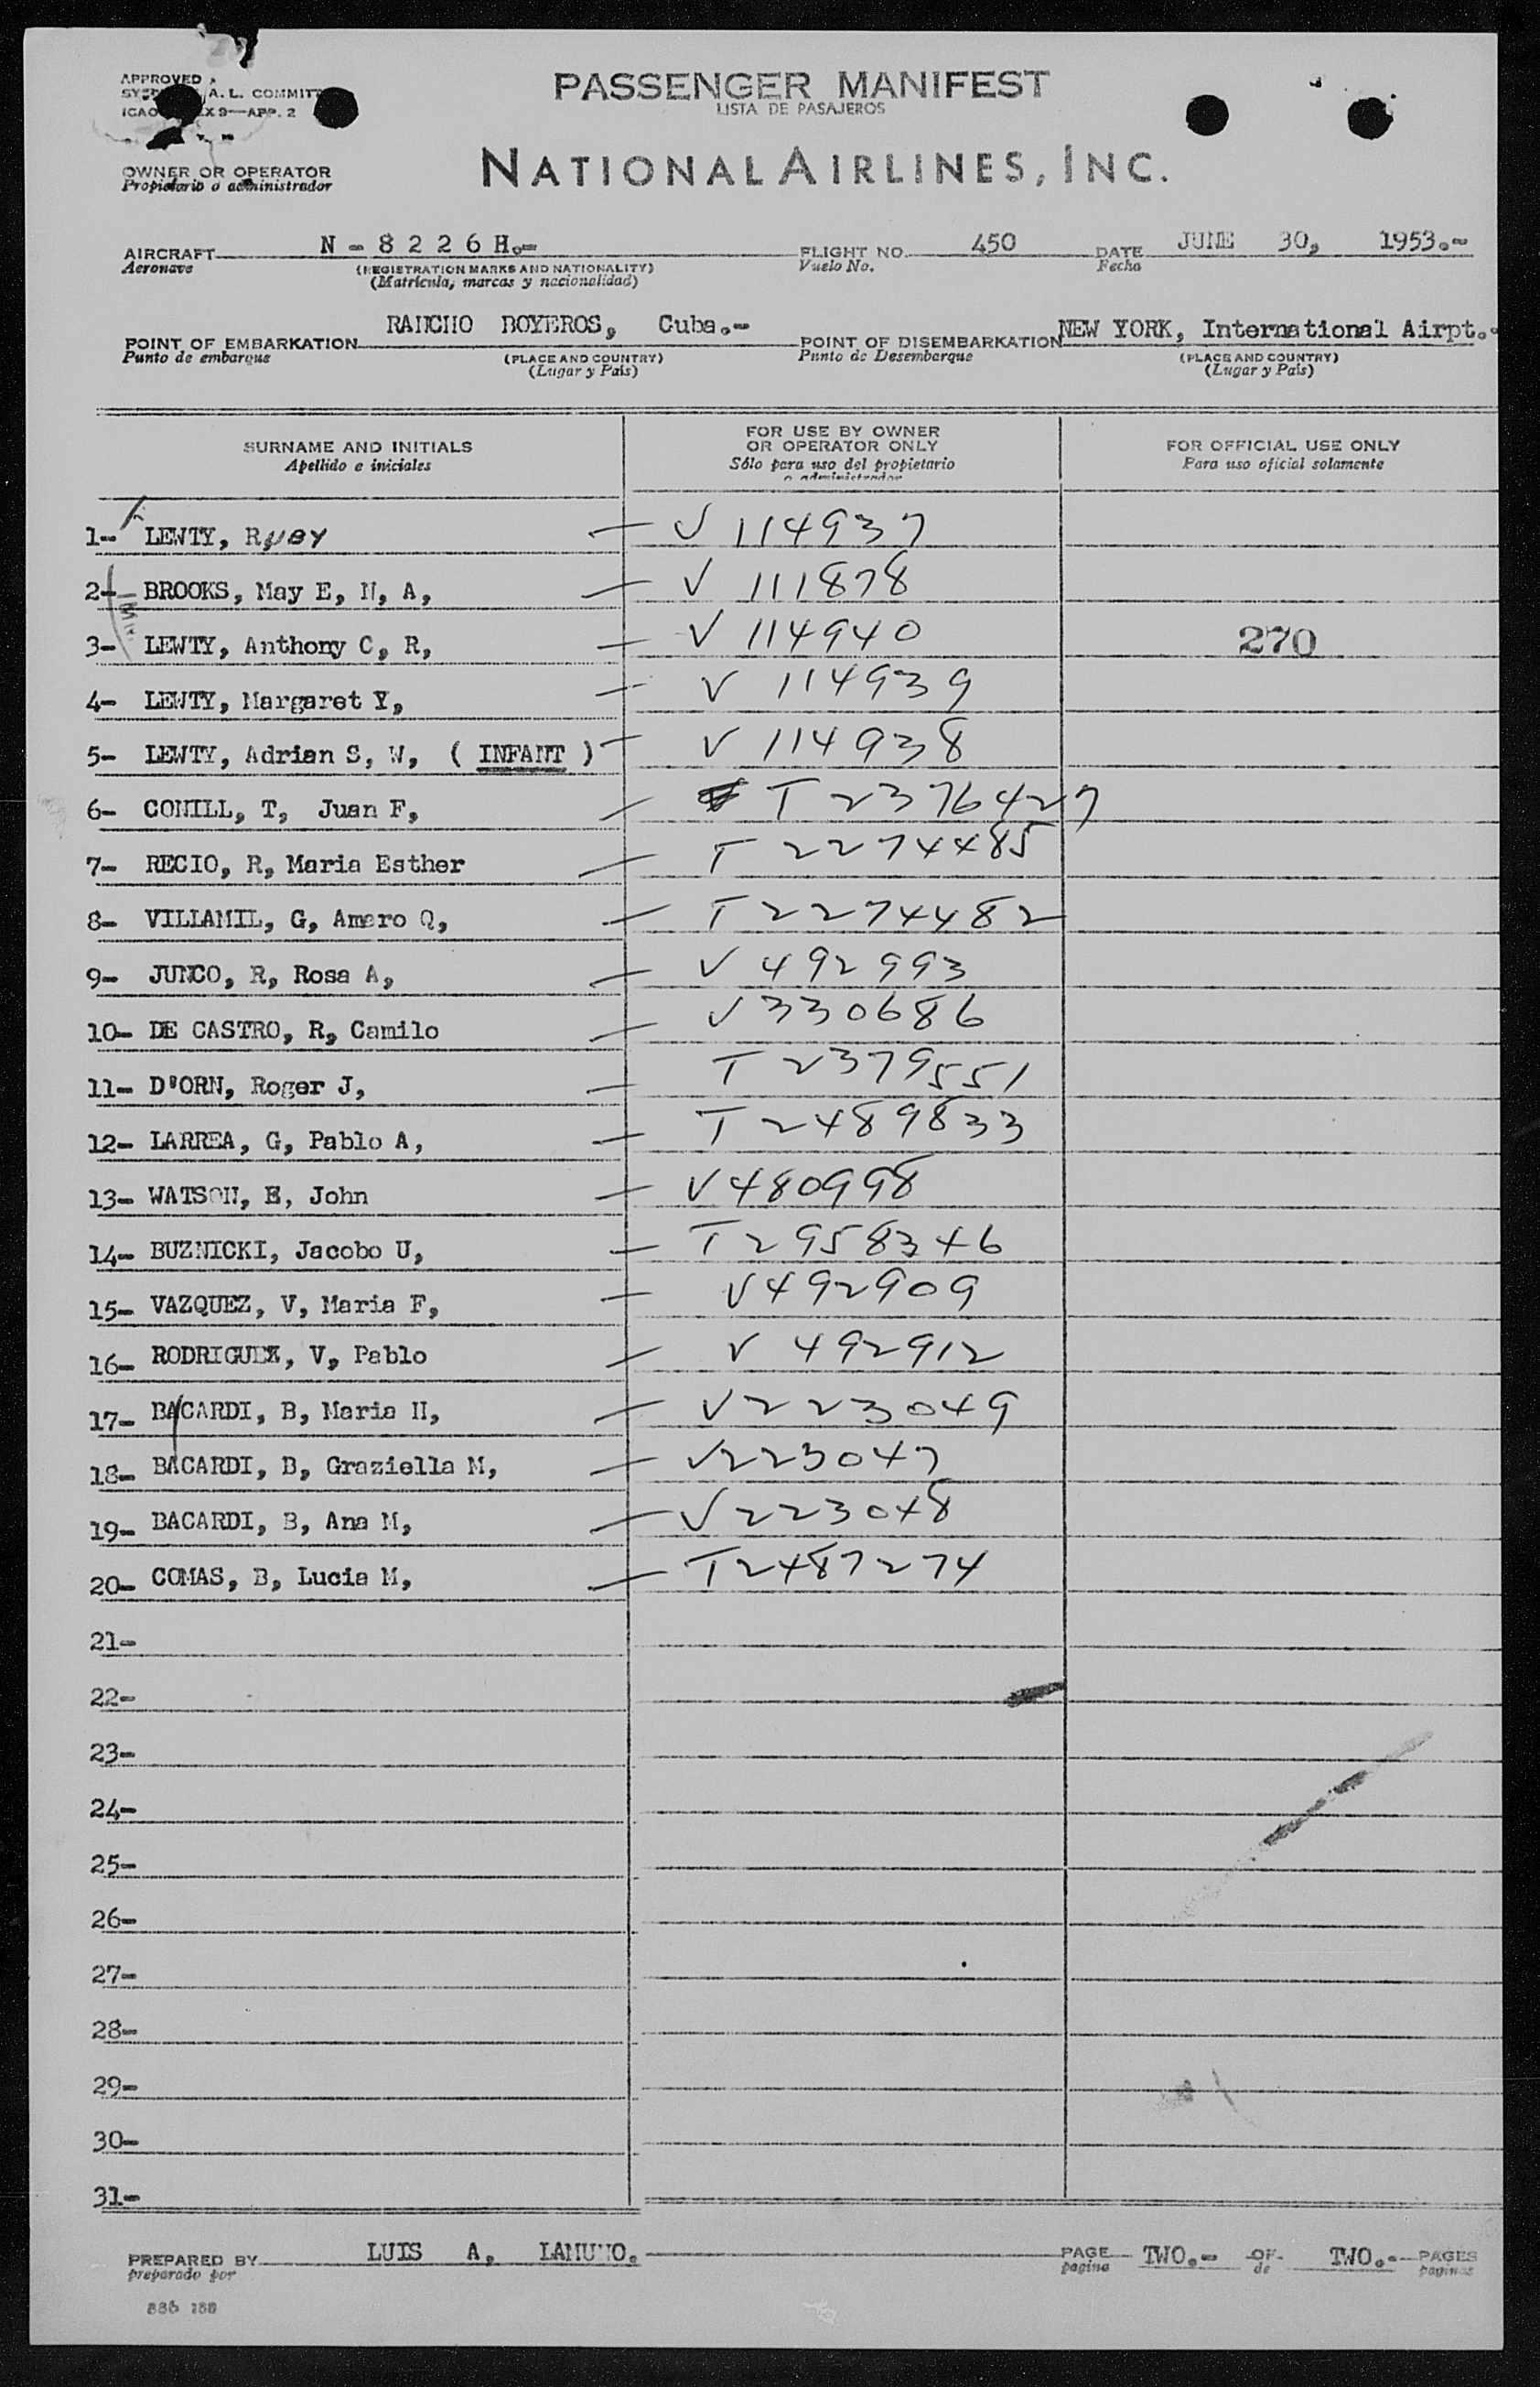 APPROVED
A. L. COMMITT
ICAO X 9—APP. 2
PASSENGER MANIFEST
LISTA DE PASAJEROS
OWNER OR OPERATOR
Propietario o administrador
NATIONAL AIRLINES, INC.
AIRCRAFT N - 8 2 2 6 H.- FLIGHT NO. 450 DATE JUNE 30, 1953.-
Aeronave (REGISTRATION MARKS AND NATIONALITY) Vuelo No. Fecha
(Matrícula, marcas y nacionalidad)
POINT OF EMBARKATION RANCHO BOYEROS, Cuba.- POINT OF DISEMBARKATION NEW YORK, International Airpt.-
Punto de embarque (PLACE AND COUNTRY) Punto de Desembarque (PLACE AND COUNTRY)
(Lugar y País) (Lugar y País)
SURNAME AND INITIALS FOR USE BY OWNER OR OPERATOR ONLY FOR OFFICIAL USE ONLY
Apellido e iniciales Sólo para uso del propietario o administrador Para uso oficial solamente
1- LEWTY, RUBY — V 114937
2- BROOKS, May E, N, A, — V 111878
3- LEWTY, Anthony C, R, — V 114940 270
4- LEWTY, Margaret Y, — V 114939
5- LEWTY, Adrian S, W, ( INFANT ) — V 114938
6- CONILL, T, Juan F, — T 2376427
7- RECIO, R, Maria Esther — T 2274485
8- VILLAMIL, G, Amaro Q, — T 2274482
9- JUNCO, R, Rosa A, — V 492993
10- DE CASTRO, R, Camilo — V 330686
11- D'ORN, Roger J, — T 2379551
12- LARREA, G, Pablo A, — T 2489833
13- WATSON, E, John — V 480998
14- BUZNICKI, Jacobo U, — T 2958346
15- VAZQUEZ, V, Maria F, — V 492909
16- RODRIGUEZ, V, Pablo — V 492912
17- BACARDI, B, Maria H, — V 223049
18- BACARDI, B, Graziella M, — V 223047
19- BACARDI, B, Ana M, — V 223048
20- COMAS, B, Lucia M, — T 2487274
21-
22-
23-
24-
25-
26-
27-
28-
29-
30-
31-
PREPARED BY LUIS A, LAMUNO. PAGE TWO.- OF TWO.- PAGES
preparado por pagina de paginas